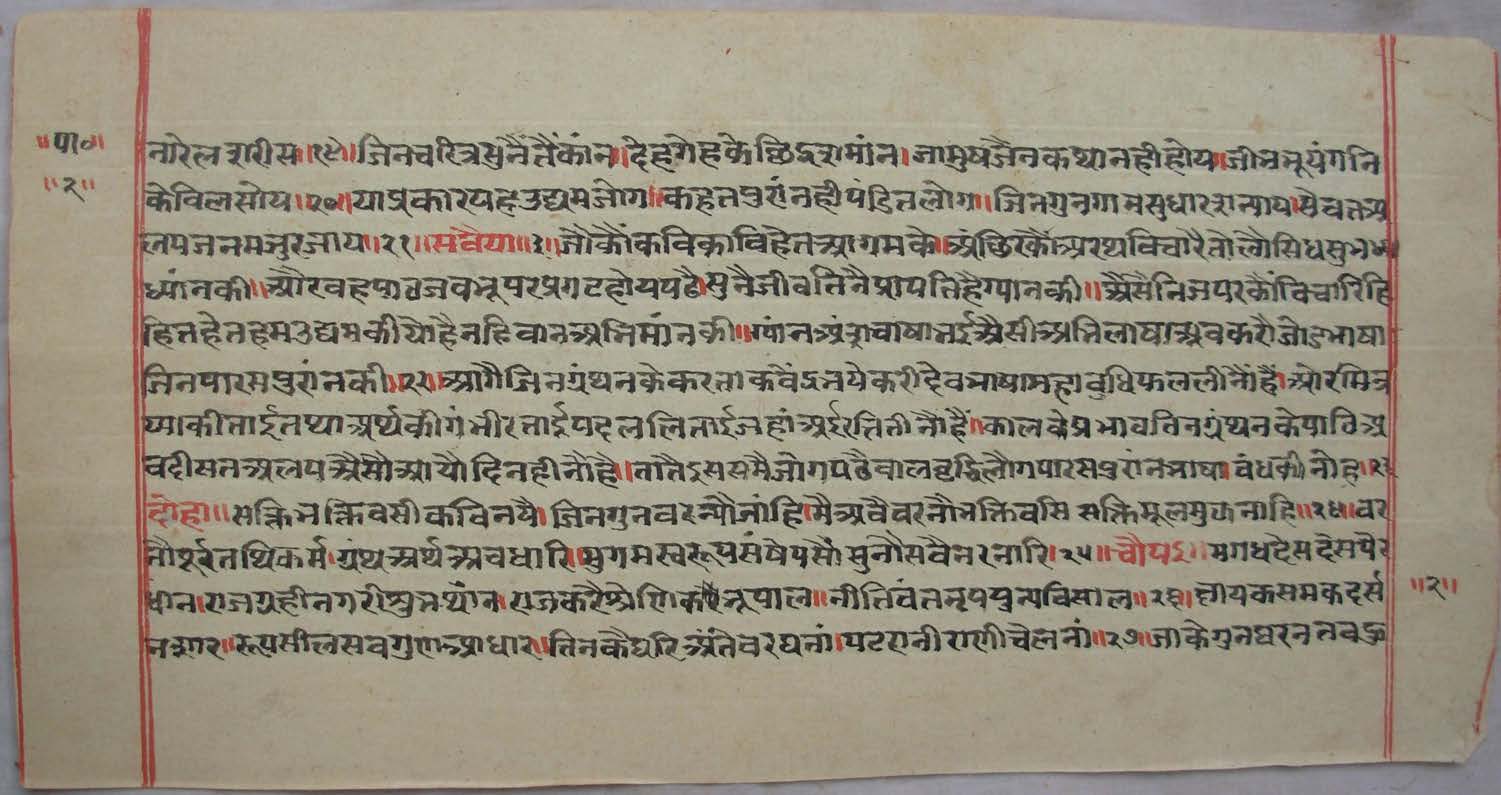 ॥पा०॥
॥२॥
नारेल बारीस॥१९॥जिनचरित्र सुनैं तैं कांन।देह गेह के छिद्र समांन।जा मुष जैन कथा नही होय।जीभ भूयंगनि
के विल सोय।२०।या प्रकार यह उद्यम जोग।कहत पुरांन ही पंडित लोग॥जिन गुन गाम सुधारस न्याय।सेवत अ
लप जनम जुर जाय।२१॥सवैया॥३१॥जौ कौं कवि काविहेत आगम के अंछिर कौ अरथ विचारै तौ लौ सिध सुभ
ध्यांन की॥और वह पाठ जब भू पर प्रगट होय पढै सुनै जीव तिनै प्रापति है ग्यान की॥औसै निज पर कौं विचारि हि
हित हेत हम उद्यम कीयो है नहि वान अभिमांन की॥ग्यांन अं भाषा भई औसी अभिलाषा अव करौ जोड भाषा
जिन पारस पुरांन की॥२२॥आगै जिन ग्रंथन के करता कवेंद्र भये करी देव भाषा महा वुधि फल लीनौं है।ओर मित्र
य्या की ताई तथा अर्थ की गंभीरताई पद ललिताई जहां अई रीति तीनौं हैं॥काल के प्रभाव तिन ग्रंथन के पाठि अ
व दीसत अलप औसौ आयौ दिन हीनौं है।तातै इस समै जोग पढै वाल वुद्धि लौग पारस पुरांन भाषा वंध कीनो है।२३
दोहा॥सक्ति भक्ति वसी कविनयै।जिन गुन वरन्यौ जांहि।मै अवै वरनौ भक्ति वसि सक्ति मूल मुझ नाहि॥२४॥वर
नौ पूर्व तथि कर्म।ग्रंथ अर्थ अवधारि।सुगम स्वरूप संषेप सौं सुनौ सवै नर नारि।२५॥चौपई॥मगध देस देस पर
धांन।राजग्रही नगरी सुभथांन।राज करै श्रेणिक भूपाल॥नीतिवंत नृप पुन्य विसाल॥२६।छायक समकदर्स
न सार।रूप सील सव गुण आधार।तिनकै घरि अंतेवर घनां।पटरानी राणी चेलनां॥२७।जाके गुन वरनत वहु
॥२॥